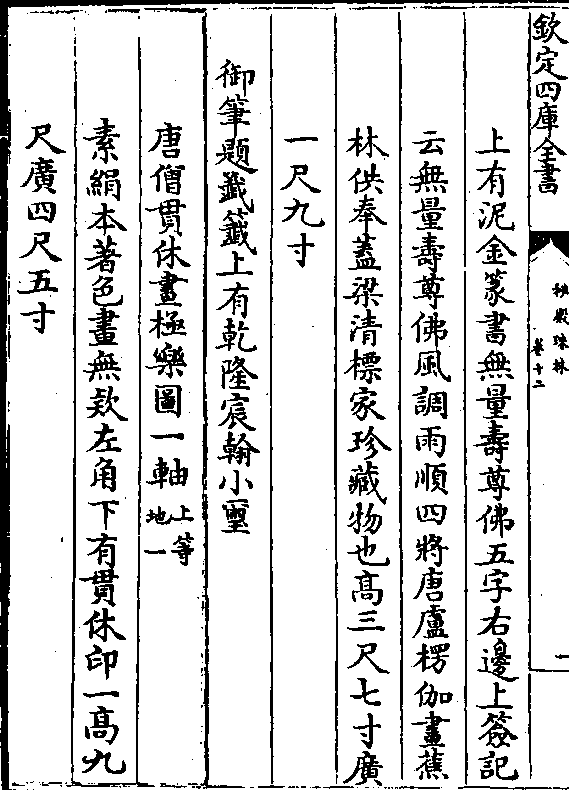 欽定四庫全書
秘殿珠林
卷十二
一
上有泥金篆書無量壽尊佛五字右邊上簽記
云無量壽尊佛風調雨順四將唐盧楞伽畫蕉
林供奉蓋梁清標家珍藏物也高三尺七寸廣
一尺九寸
御筆題籤籤上有乾隆宸翰小璽
唐僧貫休畫極樂圖一軸 上等 地一
素絹本著色畫無欵左角下有貫休印一高九
尺廣四尺五寸